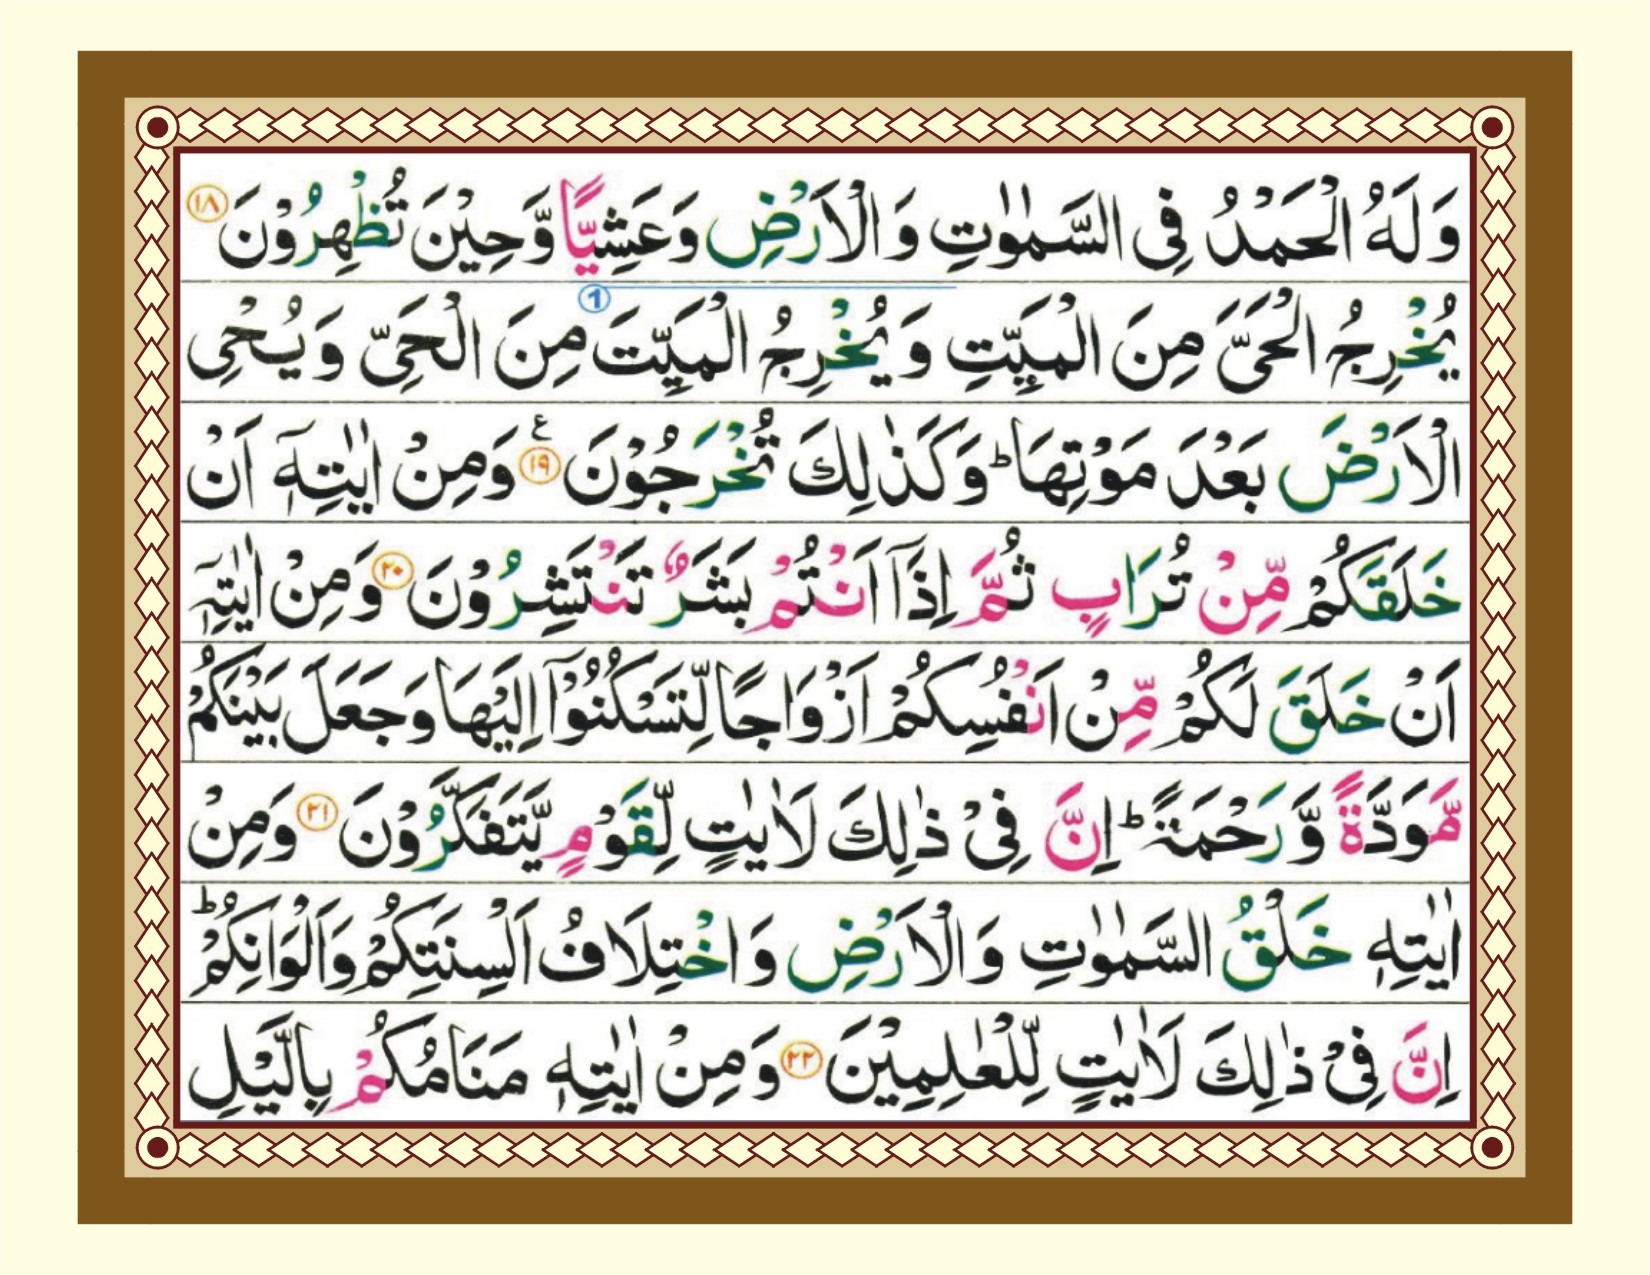 وَلَهُ الْحَمْدُ فِی السَّمٰوٰتِ وَ الْاَرْضِ وَعَشِیًّا وَّحِیْنَ تُظْهِرُوْنَ ۱۸
1
یُخْرِجُ الْحَیَّ مِنَ الْمَیِّتِ وَ یُخْرِجُ الْمَیِّتَ مِنَ الْحَیِّ وَ یُحْیِ
الْاَرْضَ بَعْدَ مَوْتِهَا ؕ وَ كَذٰلِكَ تُخْرَجُوْنَ ۱۹ ع وَمِنْ اٰیٰتِهٖۤ اَنْ
خَلَقَكُمْ مِّنْ تُرَابٍ ثُمَّ اِذَاۤ اَنْتُمْ بَشَرٌ تَنْتَشِرُوْنَ ۲۰ وَمِنْ اٰیٰتِهٖۤ
اَنْ خَلَقَ لَكُمْ مِّنْ اَنْفُسِكُمْ اَزْوَاجًا لِّتَسْكُنُوْۤا اِلَیْهَا وَجَعَلَ بَیْنَكُمْ
مَّوَدَّةً وَّ رَحْمَةً ؕ اِنَّ فِیْ ذٰلِكَ لَاٰیٰتٍ لِّقَوْمٍ یَّتَفَكَّرُوْنَ ۲۱ وَمِنْ
اٰیٰتِهٖ خَلْقُ السَّمٰوٰتِ وَ الْاَرْضِ وَ اخْتِلَافُ اَلْسِنَتِكُمْ وَاَلْوَانِكُمْ ؕ
اِنَّ فِیْ ذٰلِكَ لَاٰیٰتٍ لِّلْعٰلِمِیْنَ ۲۲ وَمِنْ اٰیٰتِهٖ مَنَامُكُمْ بِالَّیْلِ